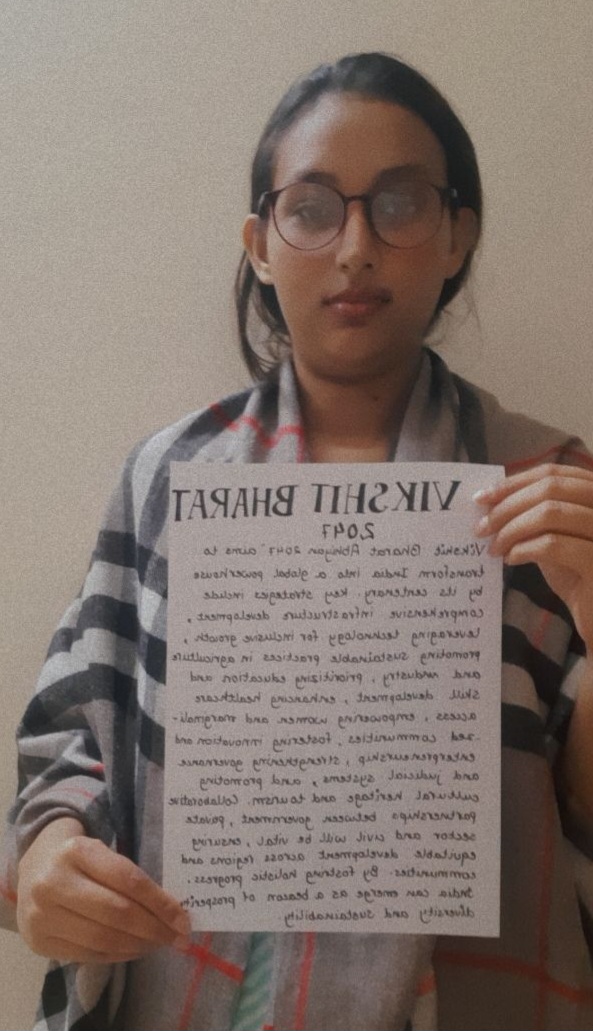 VIKSHIT BHARAT
2047
Vikshit Bharat Abhiyan 2047 aims to
transform India into a global powerhouse
by its centenary. Key strategies include
comprehensive infrastructure development,
leveraging technology for inclusive growth,
promoting sustainable practices in agriculture
and industry, prioritizing education and
skill development, enhancing healthcare
access, empowering women and marginali-
-zed communities, fostering innovation and
enterpreneurship, strengthening governance
and judicial systems, and promoting
cultural heritage and tourism. Collaborative
partnerships between government, private
sector and civil will be vital, ensuring
equitable development across regions and
communities. By fostering holistic progress.
India can emerge as a beacon of prosperity
diversity and sustainability